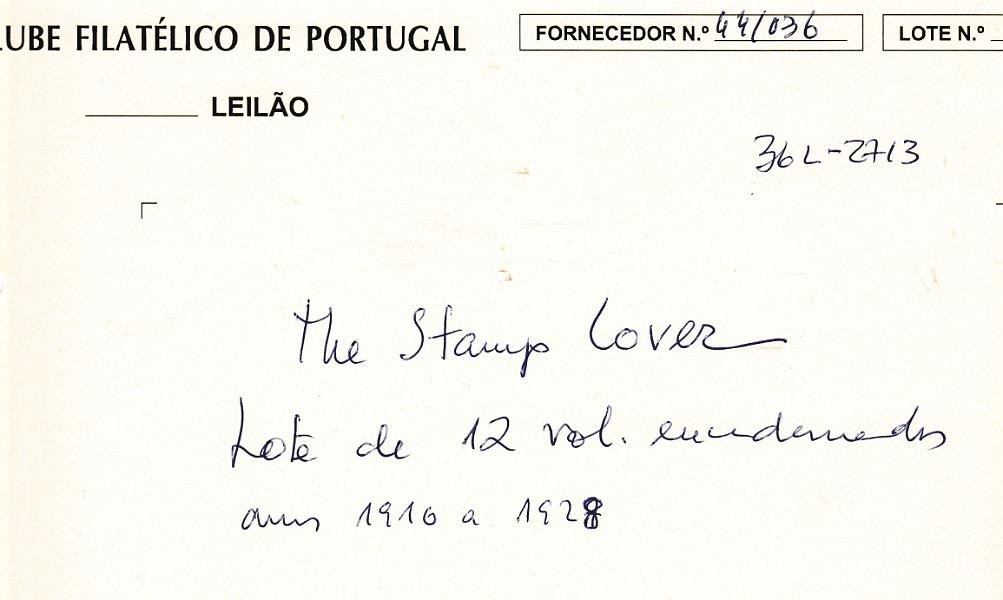 LUBE FILATÉLICO DE PORTUGAL
FORNECEDOR N.º 44/036
LOTE N.º
LEILÃO
36L-2713
The Stamp Lover
Lote de 12 vol. encadernados
anos 1910 a 1928